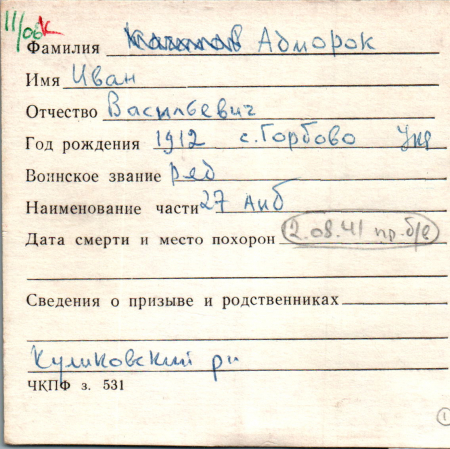 11/06 К
Фамилия Адморок
Имя Иван
Отчество Васильевич
Год рождения 1912 с. Горбово Укр
Воинское звание ряд
Наименование части 27 АИБ
Дата смерти и место похорон 2.08.41 пр. б/в
Сведения о призыве и родственниках
Куликовский рн
ЧКПФ з. 531
1